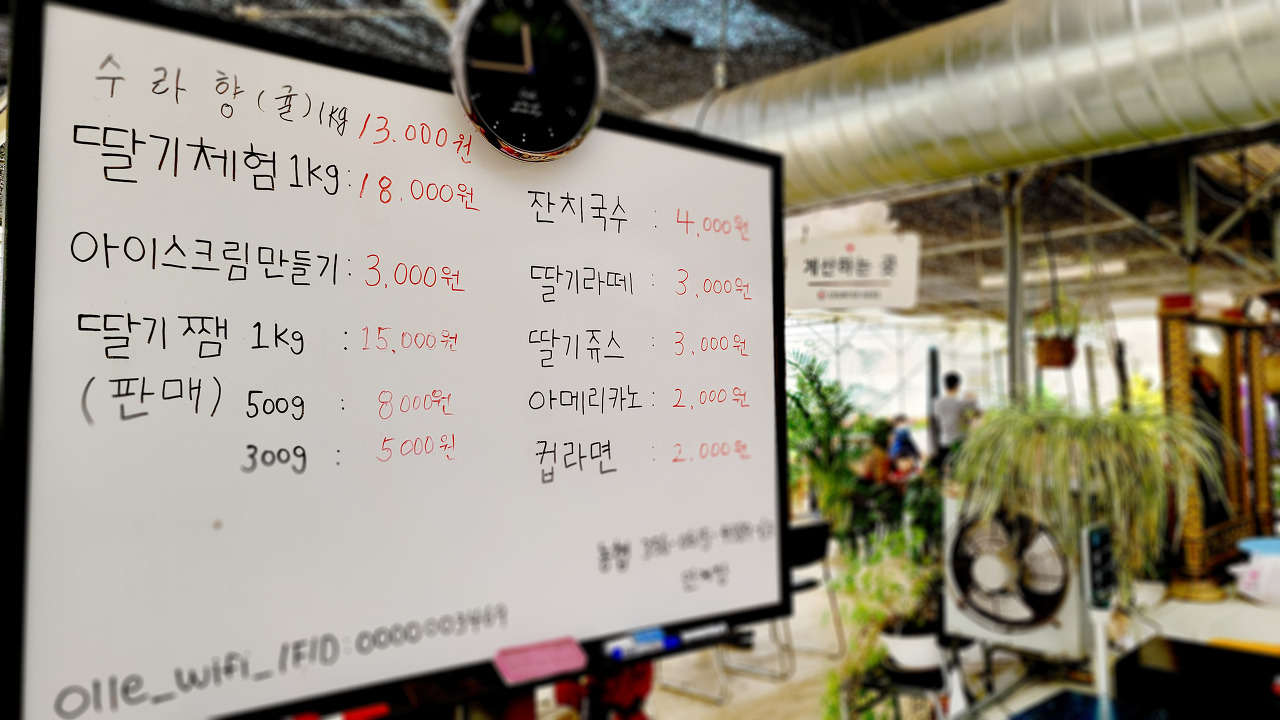 수라향(귤)1kg 13.000원
딸기체험 1kg: 18.000원
아이스크림만들기: 3,000원
딸기쨈 1kg : 15,000원
(판매) 500g : 8000원
300g : 5000원
잔치국수 : 4,000원
딸기라떼 : 3,000원
딸기쥬스 : 3,000원
아메리카노 : 2,000원
컵라면 : 2.000원
농협
olle_wifi_/FID:
계산하는 곳